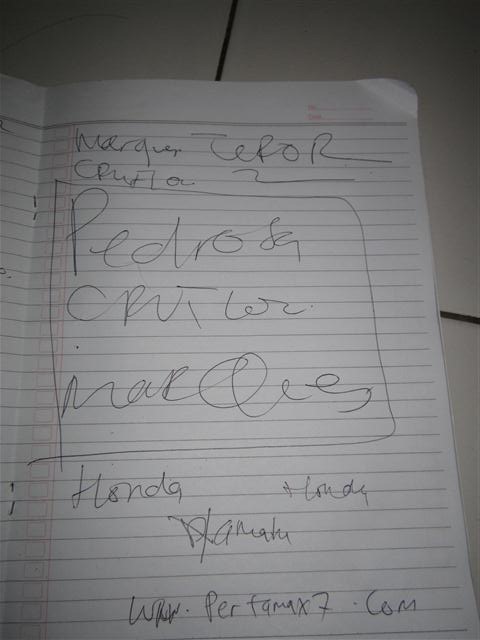 Marques TeROR
CRUTLOW 2
Pedrosa
CRUTLOW.
MARQues
Honda Honda
Yamaha
www.Pertamax7.Com